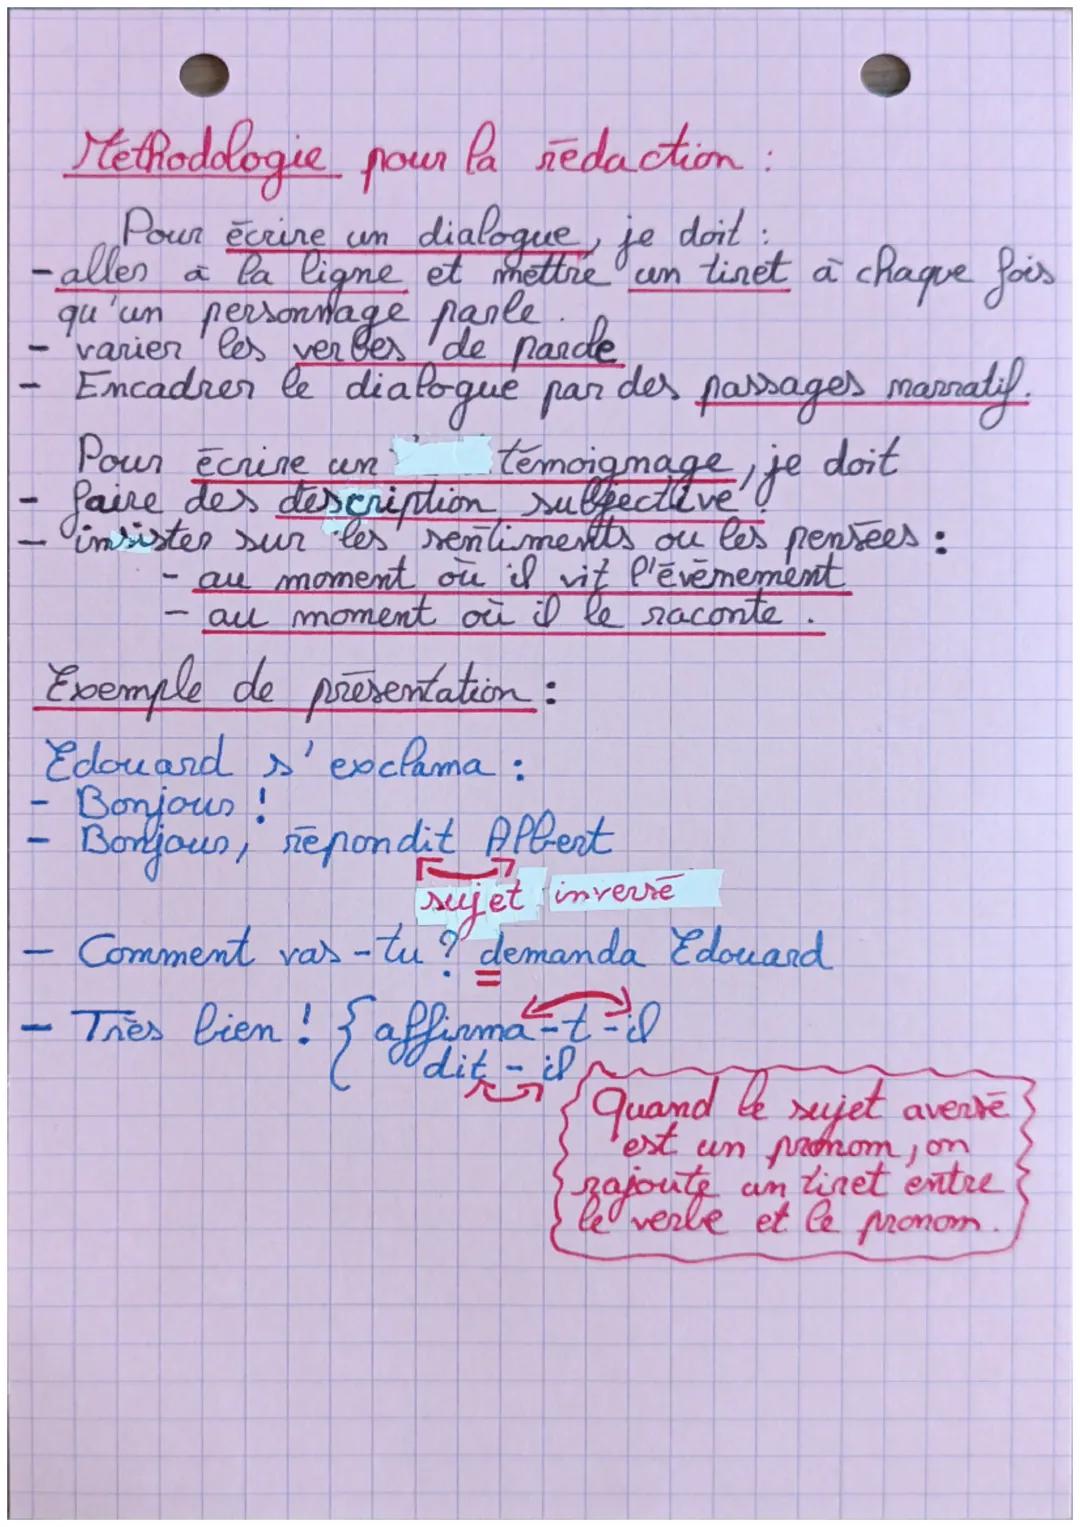 Méthodologie pour la rédaction :
Pour écrire un dialogue, je doit :
- aller à la ligne et mettre un tiret à chaque fois
qu'un personnage parle.
- varier les verbes de parole
- Encadrer le dialogue par des passages narratif.
Pour écrire un témoignage, je doit
- faire des description subjective.
- insister sur les sentiments ou les pensées :
- au moment où il vit l'évènement
- au moment où il le raconte.
Exemple de présentation :
Edouard s'exclama :
- Bonjour !
- Bonjour, répondit Albert
sujet inversé
- Comment vas-tu ? demanda Edouard
- Très bien ! { affirma-t-il
dit-il
Quand le sujet aversé
est un pronom, on
rajoute un tiret entre
le verbe et le pronom.